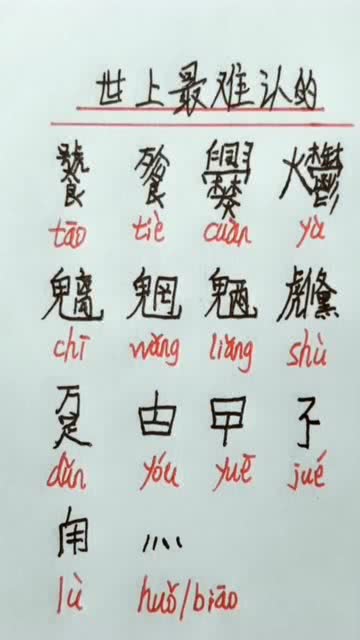 世上最难认的
饕 餮 爨 爩
tāo tiè cuàn yù
魑 魍 魉 虪
chī wǎng liǎng shù
趸 甴 曱 孓
dǔn yóu yuē jué
甪 灬
lù huǒ/biāo